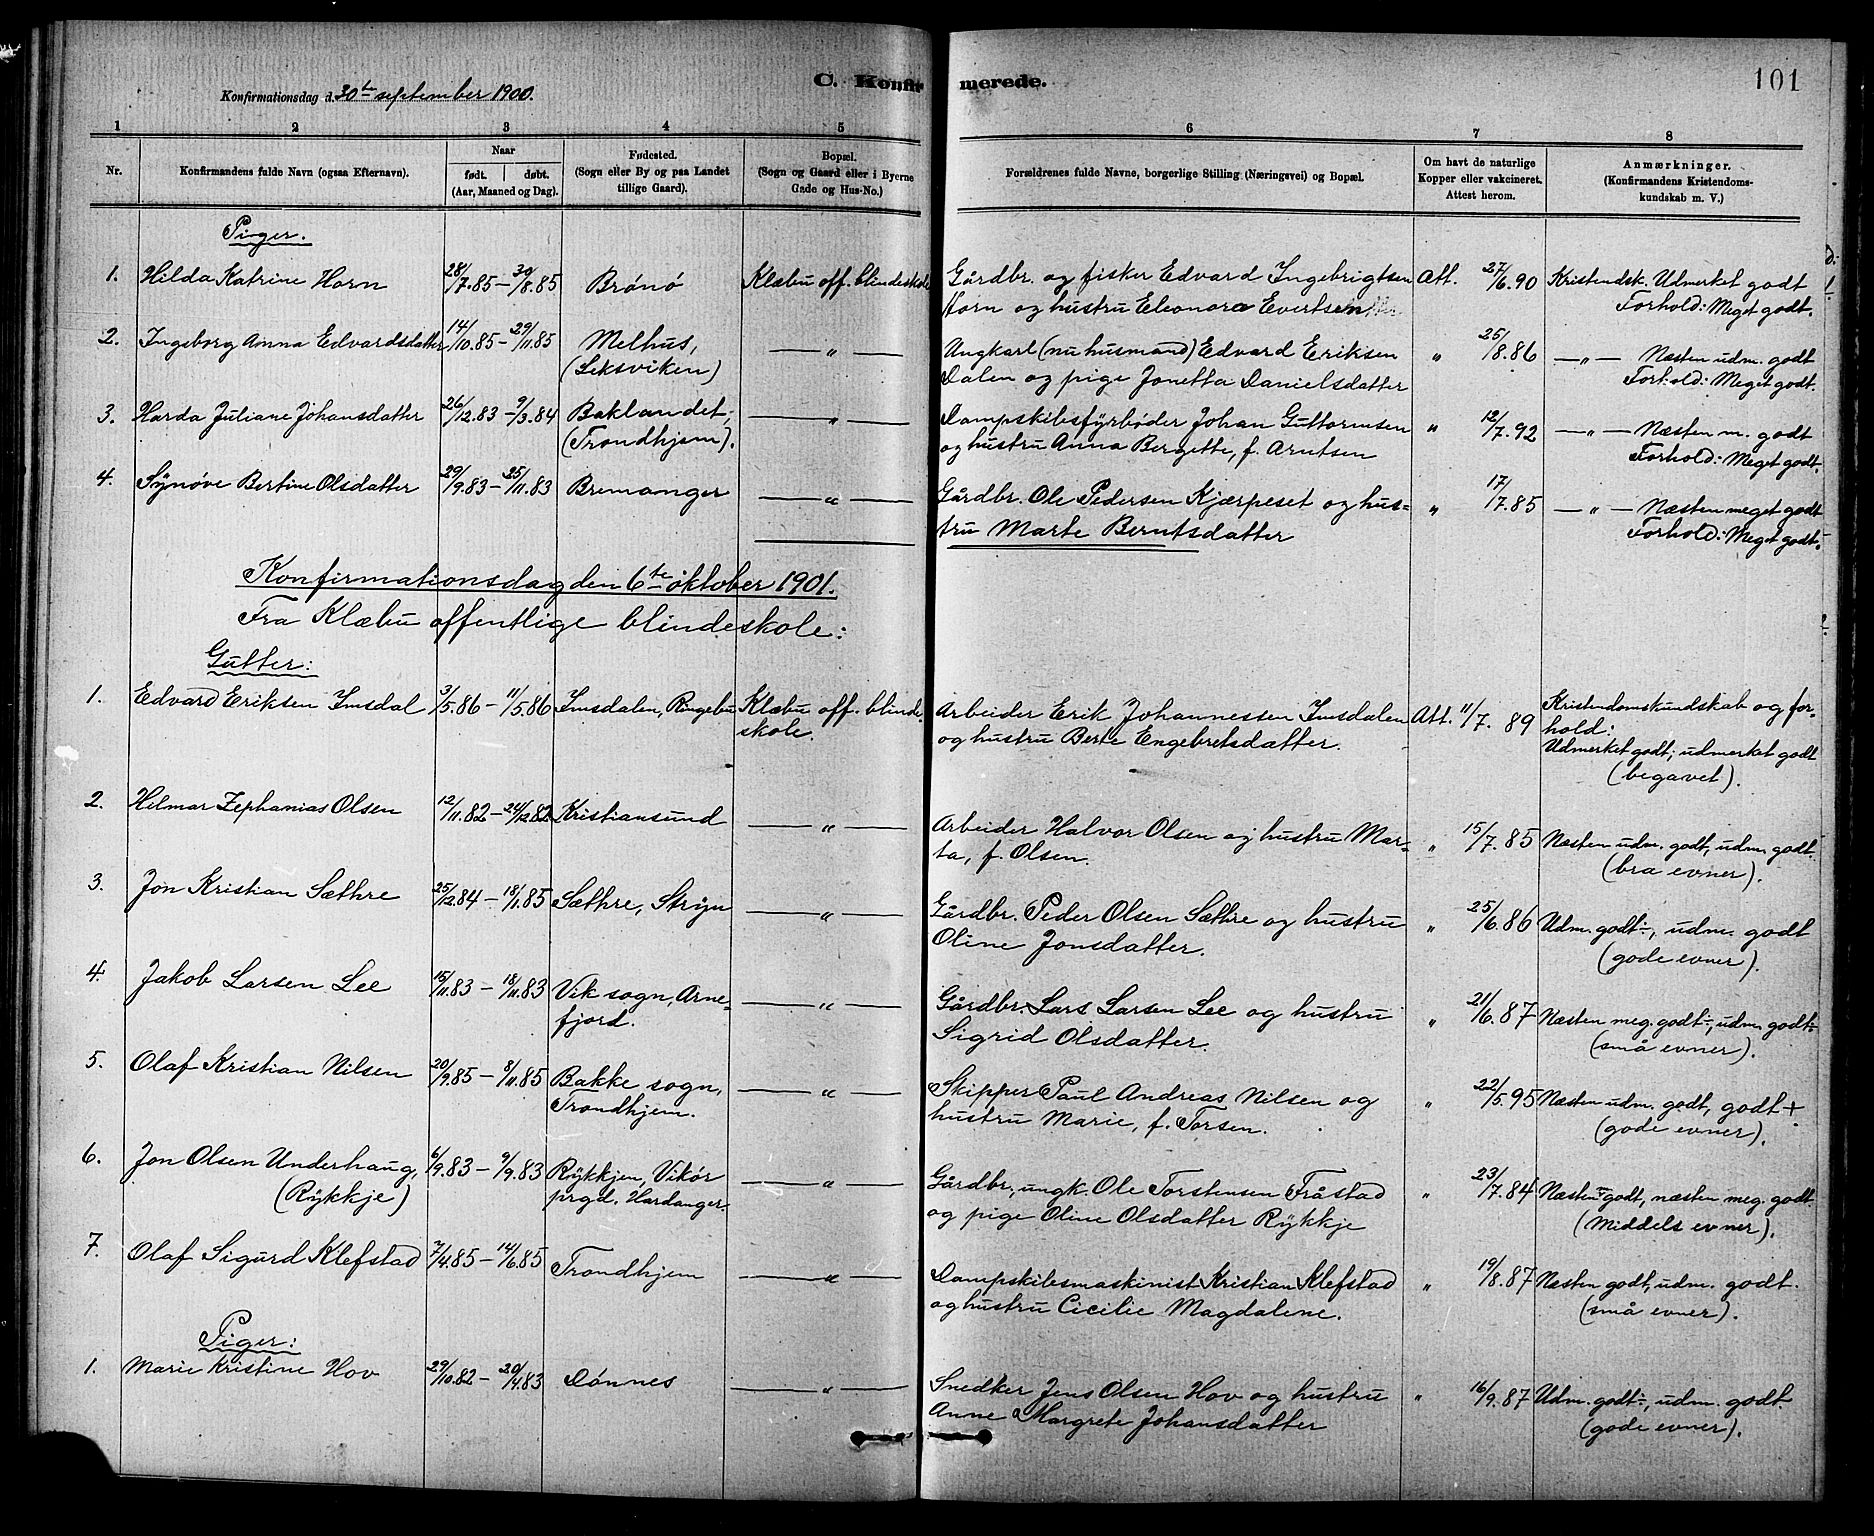 C. Konfirmerede. 101
Konfirmationsdag d. 30te september 1900.
1 2 3 4 5 6 7 8
Nr. Konfirmandens fulde Navn (ogsaa Efternavn). Naar født. døbt. (Aar, Maaned og Dag). Fødested. (Sogn eller By og paa Landet tillige Gaard). Bopæl. (Sogn og Gaard eller i Byerne Gade og Hus-No.) Forældrenes fulde Navne, borgerlige Stilling (Næringsvei) og Bopæl. Om havt de naturlige Kopper eller vakcineret. Attest herom. Anmærkninger. (Konfirmandens Kristendomskundskab m. V.)
Piger.
1. Hilda Katrine Horn 28/7.85 — 30/8.85 Brønø Klæbu off. blindeskole Gårdbr. og fisker Edvard Ingebrigtsen Att. 27/6.90 Kristendsk. Udmerket godt
Horn og hustru Eleonora Evertsen Forhold: Meget godt.
2. Ingeborg Anna Edvardsdatter 14/10.85 — 29/11.85 Melhus, — " — Ungkarl (nu husmand) Edvard Eriksen " 25/8.86 — " — Næsten udm. godt
(Leksviken) Dalen og pige Jonetta Danielsdatter Forhold: Meget godt.
3. Harda Juliane Johansdatter 26/12.83 — 9/3.84 Baklandet, — " — Dampskibsfyrbøder Johan Guttormsen " 12/7.92 — " — Næsten m. godt
(Trondhjem). og hustru Anna Bergette, f. Arntsen Forhold: Meget godt.
4. Synøve Bertine Olsdatter 29/9.83 — 25/11.83 Bremanger — " — Gårdbr. Ole Pedersen Kjærpeset og hus= " 17/7.85 — " — Næsten meget godt
tru Marte Berntsdatter Forhold: Meget godt.
Konfirmationsdag den 6te oktober 1901.
Fra Klæbu offentlige blindeskole:
Gutter:
1. Edvard Eriksen Imsdal 3/5.86 — 11/5.86 Imsdalen, Ringebu Klæbu off. blinde Arbeider Erik Johannessen Imsdalen Att. 11/7.89 Kristendomskundskab og for=
skole. og hustru Berte Engebretsdatter. hold:
Udmerket godt; udmerket godt
(begavet).
2. Hilmar Zephanias Olsen 12/11.82 — 24/12.82 Kristiansund — " — Arbeider Halvor Olsen og hustru Mar= " 15/7.85 Næsten udm. godt, udm. godt.
ta, f. Olsen. (bra evner).
3. Jon Kristian Sæthre 25/12.84 — 18/1.85 Sæthre, Stryn — " — Gårdbr. Peder Olsen Sæthre og hustru " 25/6.86 Udm. godt÷, udm. godt
Oline Jonsdatter. (gode evner).
4. Jakob Larsen Lee 15/11.83 — 18/11.83 Vik sogn, Arne= — " — Gårdbr. Lars Larsen Lee og hustru " 21/6.87 Næsten meg. godt÷, udm. godt÷
fjord. Sigrid Olsdatter. (små evner).
5. Olaf Kristian Nilsen 20/9.85 — 8/11.85 Bakke sogn, — " — Skipper Paul Andreas Nilsen og " 22/5.95 Næsten udm. godt, godt +
Trondhjem. hustru Marie, f. Torsen. (gode evner).
6. Jon Olsen Underhaug, 6/9.83 — 9/9.83 Rykkjen, Vikør — " — Gårdbr., ungk. Ole Torstensen Fråstad " 23/7.84 Næsten godt, næsten meg. godt.
(Rykkje) prgd. Hardanger. og pige Oline Olsdatter Rykkje (Middels evner).
7. Olaf Sigurd Klefstad 7/4.85 — 14/6.85 Trondhjem — " — Dampskibsmaskinist Kristian Klefstad " 19/8.87 Næsten godt, udm. godt.
og hustru Cicilie Magdalene. (små evner).
Piger:
1. Marie Kristine Hov 29/10.82 — 20/4.83 Dønnes — " — Snedker Jens Olsen Hov og hustru " 16/9.87 Udm. godt÷, udm. godt.
Anne Margrete Johansdatter (gode evner).